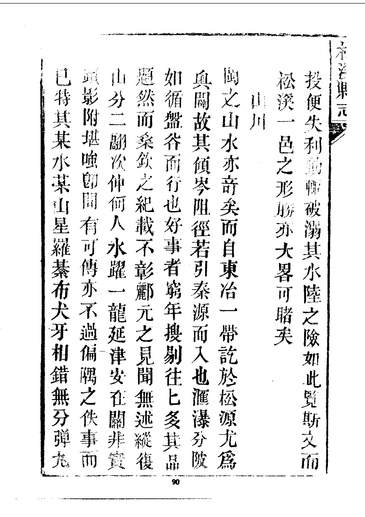 松溪縣志
投便失利動輒破溺其水陸之險如此覽斯文而
松溪一邑之形勝亦大畧可睹矣
山川
閩之山水亦奇矣而自東冶一帶訖於松源尤爲
奥闢故其傾岑阻徑若引秦源而入也滙瀑分陂
如循盤谷而行也好事者窮年搜剔往往多其品
題然而桑欽之紀載不彰酈元之見聞無述縱復
山分二翮次仲何人水躍一龍延津安在關非實
影附堪嗤卽間有可傳亦不過偏隅之佚事而
已特其某水某山星羅棊布犬牙相錯無分彈丸
90